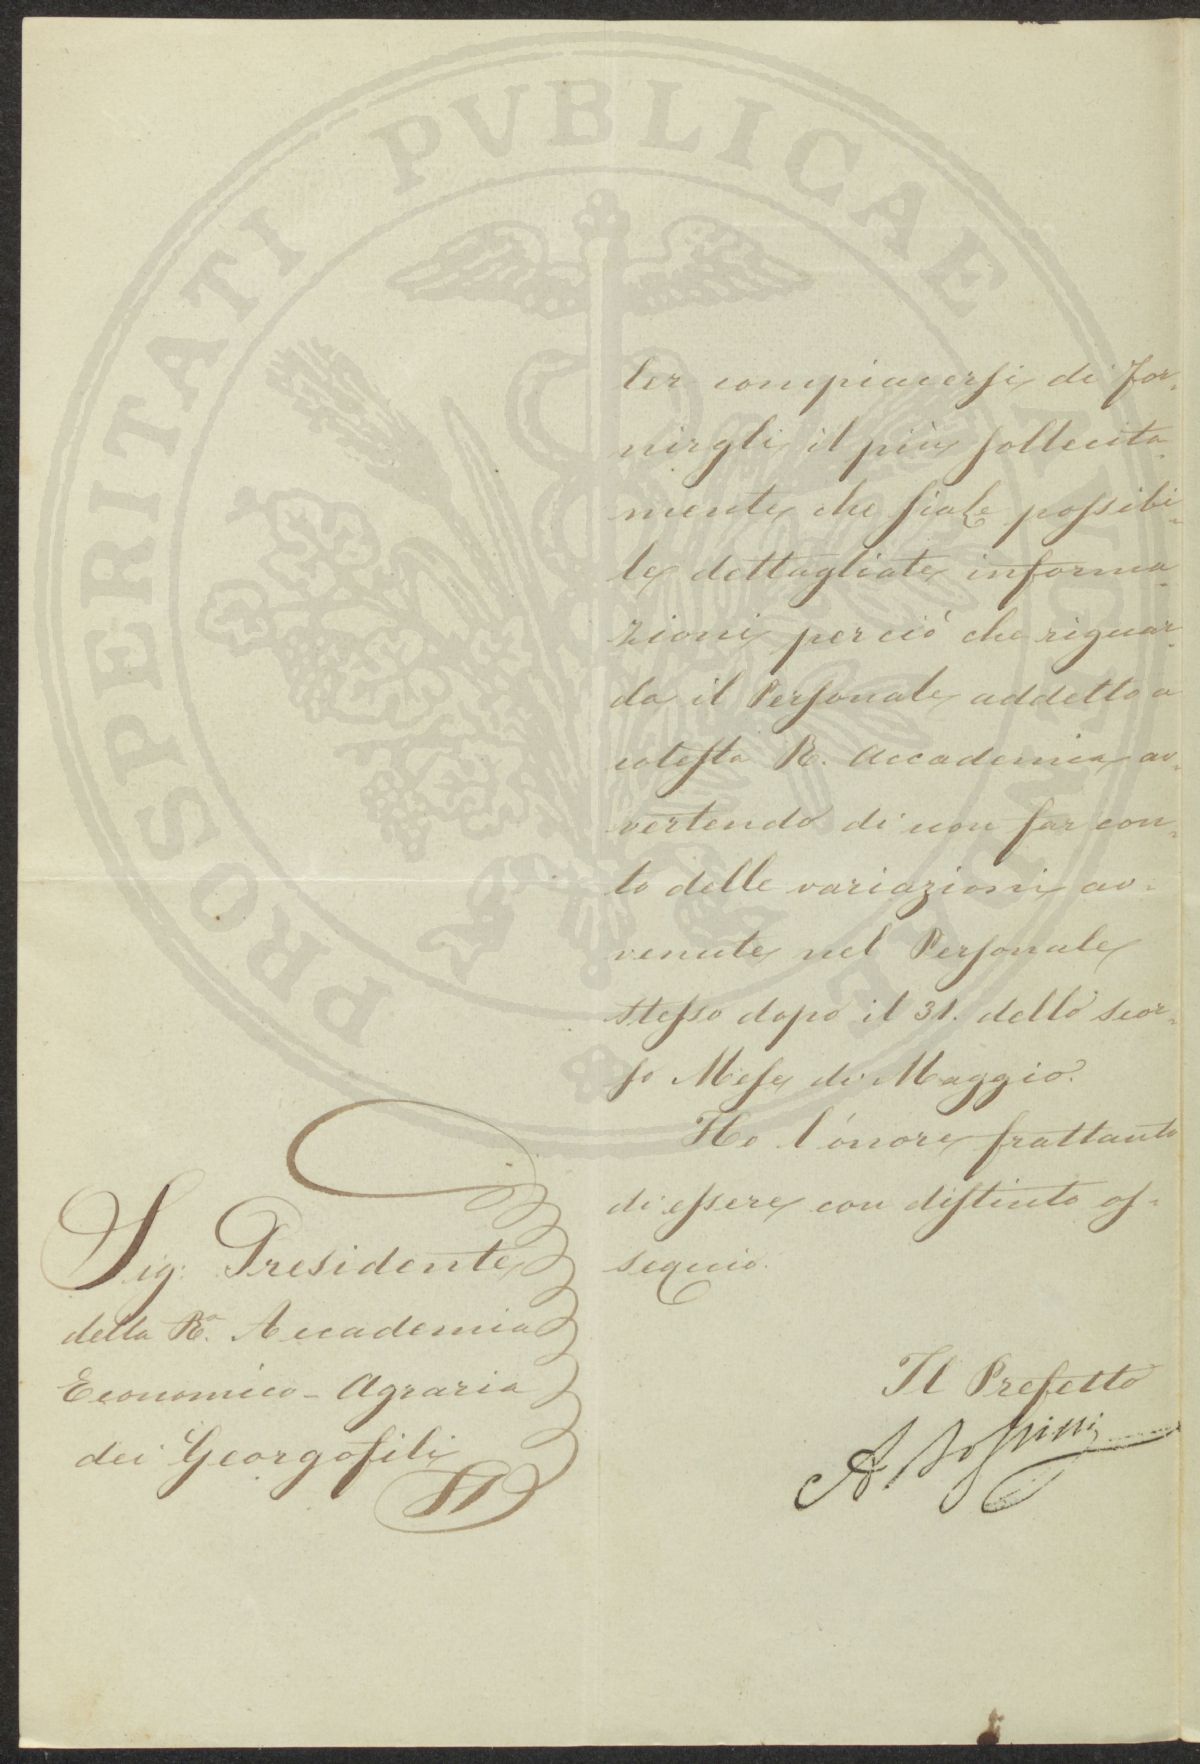 ler compiacersi di for-
nirgli il più sollecita-
mente che siale possibi-
le dettagliate informa-
zioni per ciò che riguar-
da il Personale addetto a
cotesta R. Accademia av-
vertendo di non far con-
to delle variazioni av-
venute nel Personale
stesso dopo il 31. dello scor-
so Mese di Maggio.
Ho l'onore frattanto
di essere con distinto os-
sequio.
Il Prefetto
Sig: Presidente
della Rª. Accademia
Economico-Agraria
dei Georgofili
PROSPERITATI PVBLICAE AVGENDAE